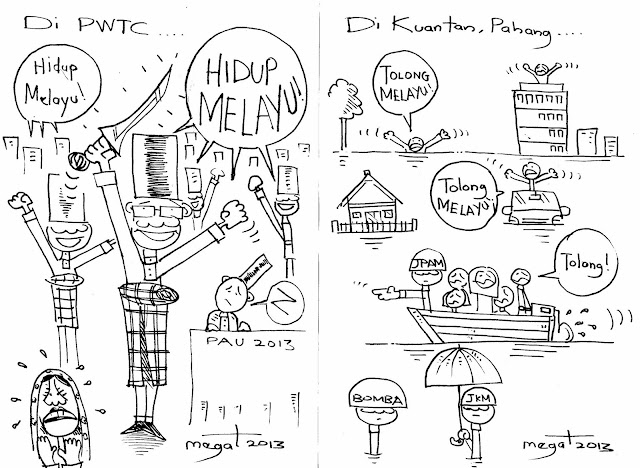 Di PWTC....
Hidup
Melayu!
HIDUP
MELAYU!
PAU 2013
megat 2013
Di Kuantan, Pahang....
TOLONG
MELAYU!
Tolong
MELAYU!
JPAM
Tolong!
BOMBA
JKM
megat 2013